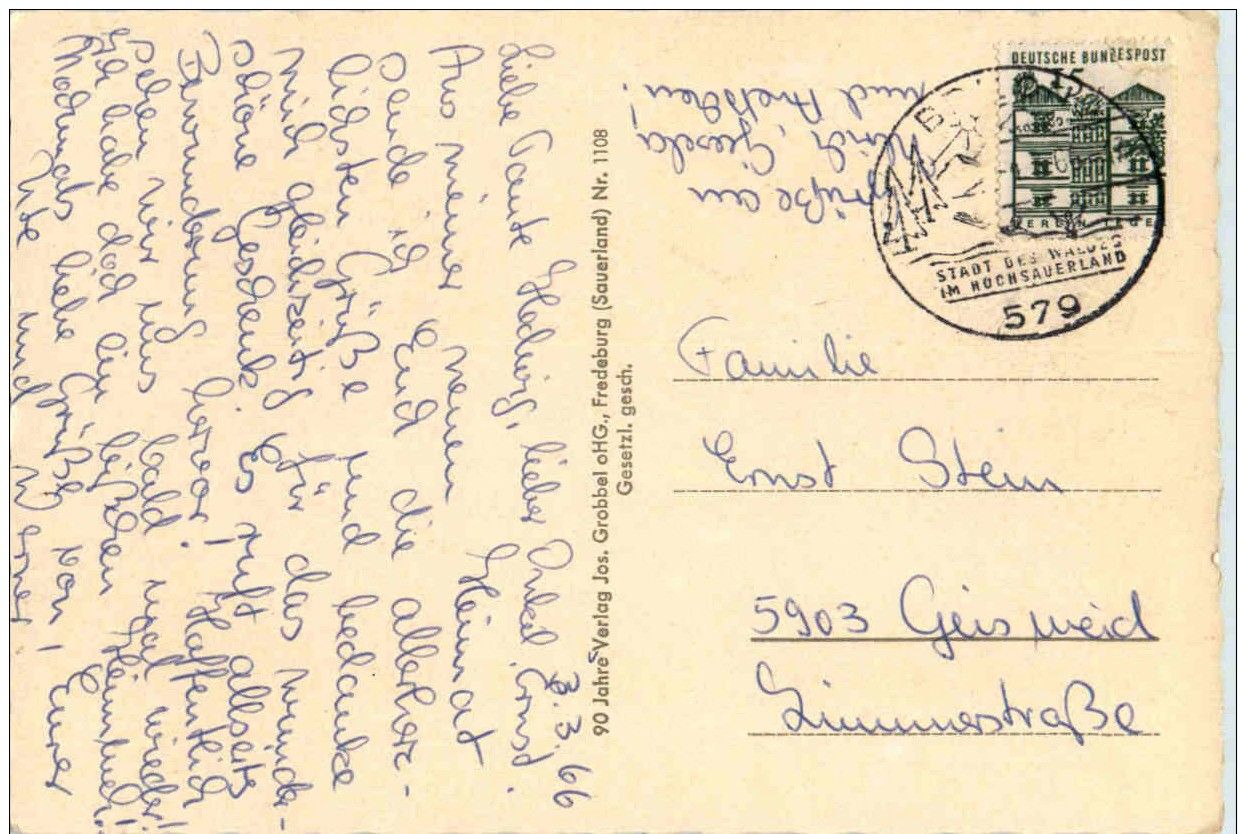 3.3.66
Liebe Tante Hedwig, lieber Onkel Ernst.
Aus meiner neuen Heimat
sende ich Euch die allerherz-
lichsten Grüße und bedanke
mich gleichzeitig für das wunder-
schöne Geschenk. Es ruft allseits
Bewunderung hervor! Hoffentlich
sehen wir uns bald mal wieder!
Ich habe doch ein bißchen Heimweh!
Nochmals liebe Grüße von Eurer
Ute und Werner
Grüße an
Ulrich, Gisela
und
90 Jahre Verlag Jos. Grobbel oHG., Fredeburg (Sauerland) Nr. 1108
Gesetzl. gesch.
DEUTSCHE BUNDESPOST
15
BERLIN TEGEL
STADT DES WALDES
IM HOCHSAUERLAND
579
Familie
Ernst Stein
5903 Geisweid
Limmerstraße